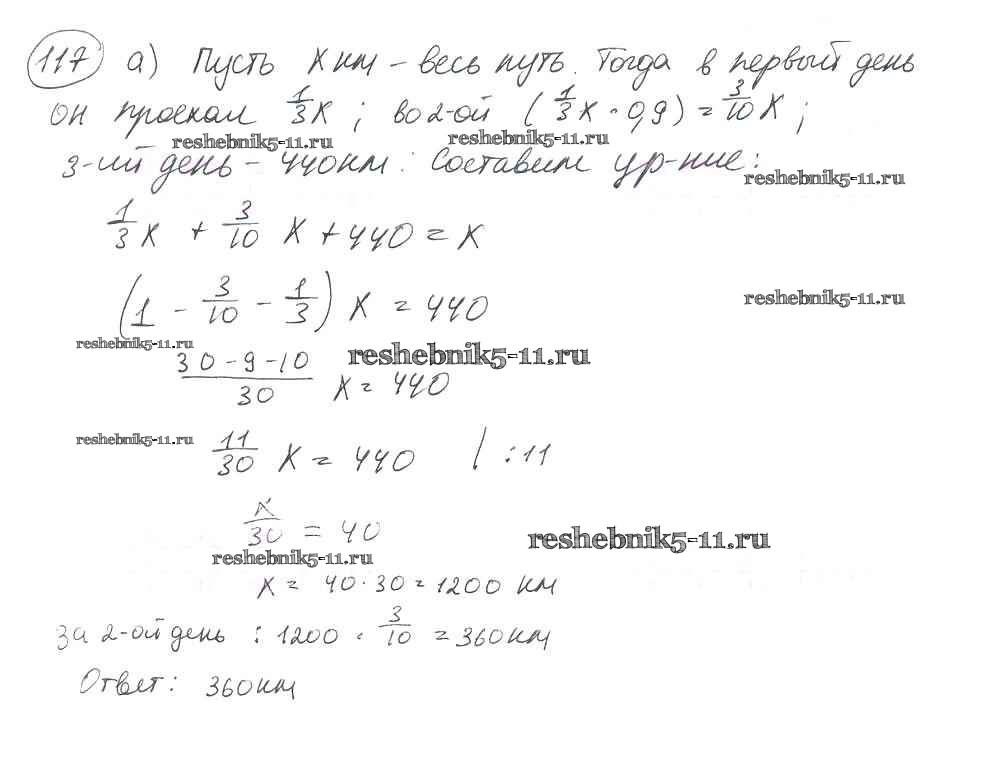 117 а) Пусть X км – весь путь. Тогда в первый день
он проехал 1/3 X ; во 2-ой (1/3 X · 0,9) = 3/10 X ;
reshebnik5-11.ru reshebnik5-11.ru
3-ий день – 440 км. Составим ур-ние:
reshebnik5-11.ru
1/3 X + 3/10 X + 440 = X
(1 - 3/10 - 1/3) X = 440
reshebnik5-11.ru
reshebnik5-11.ru
reshebnik5-11.ru
(30-9-10)/30 X = 440
reshebnik5-11.ru
11/30 X = 440 | :11
X/30 = 40
reshebnik5-11.ru
reshebnik5-11.ru
X = 40·30 = 1200 км
за 2-ой день : 1200 · 3/10 = 360 км
Ответ: 360 км